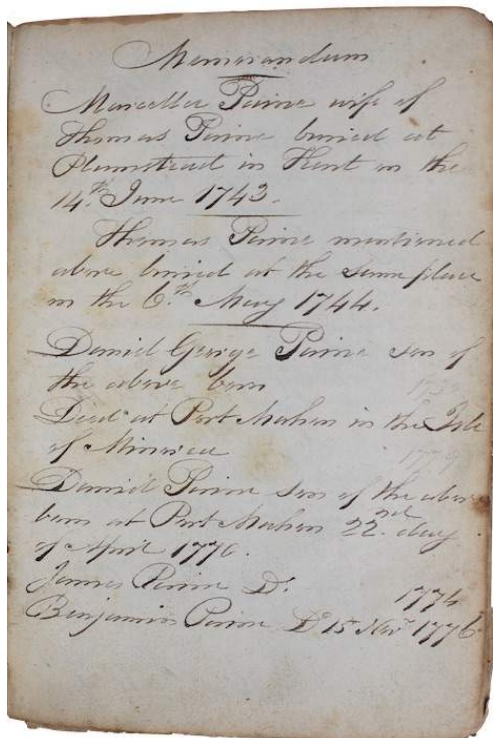 Memorandum
Marcella Paine wife of
Thomas Paine buried at
Plumstead in Kent on the
14th June 1743.
Thomas Paine mentioned
above buried at the same place
on the 6th May 1744.
Daniel George Paine son of
the above born
Died at Port Mahon in the Isle
of Minorca
Daniel Paine son of the above
born at Port Mahon 22nd day
of April 1770.
James Paine Do 1774
Benjamin Paine Do 15 Novr 1776